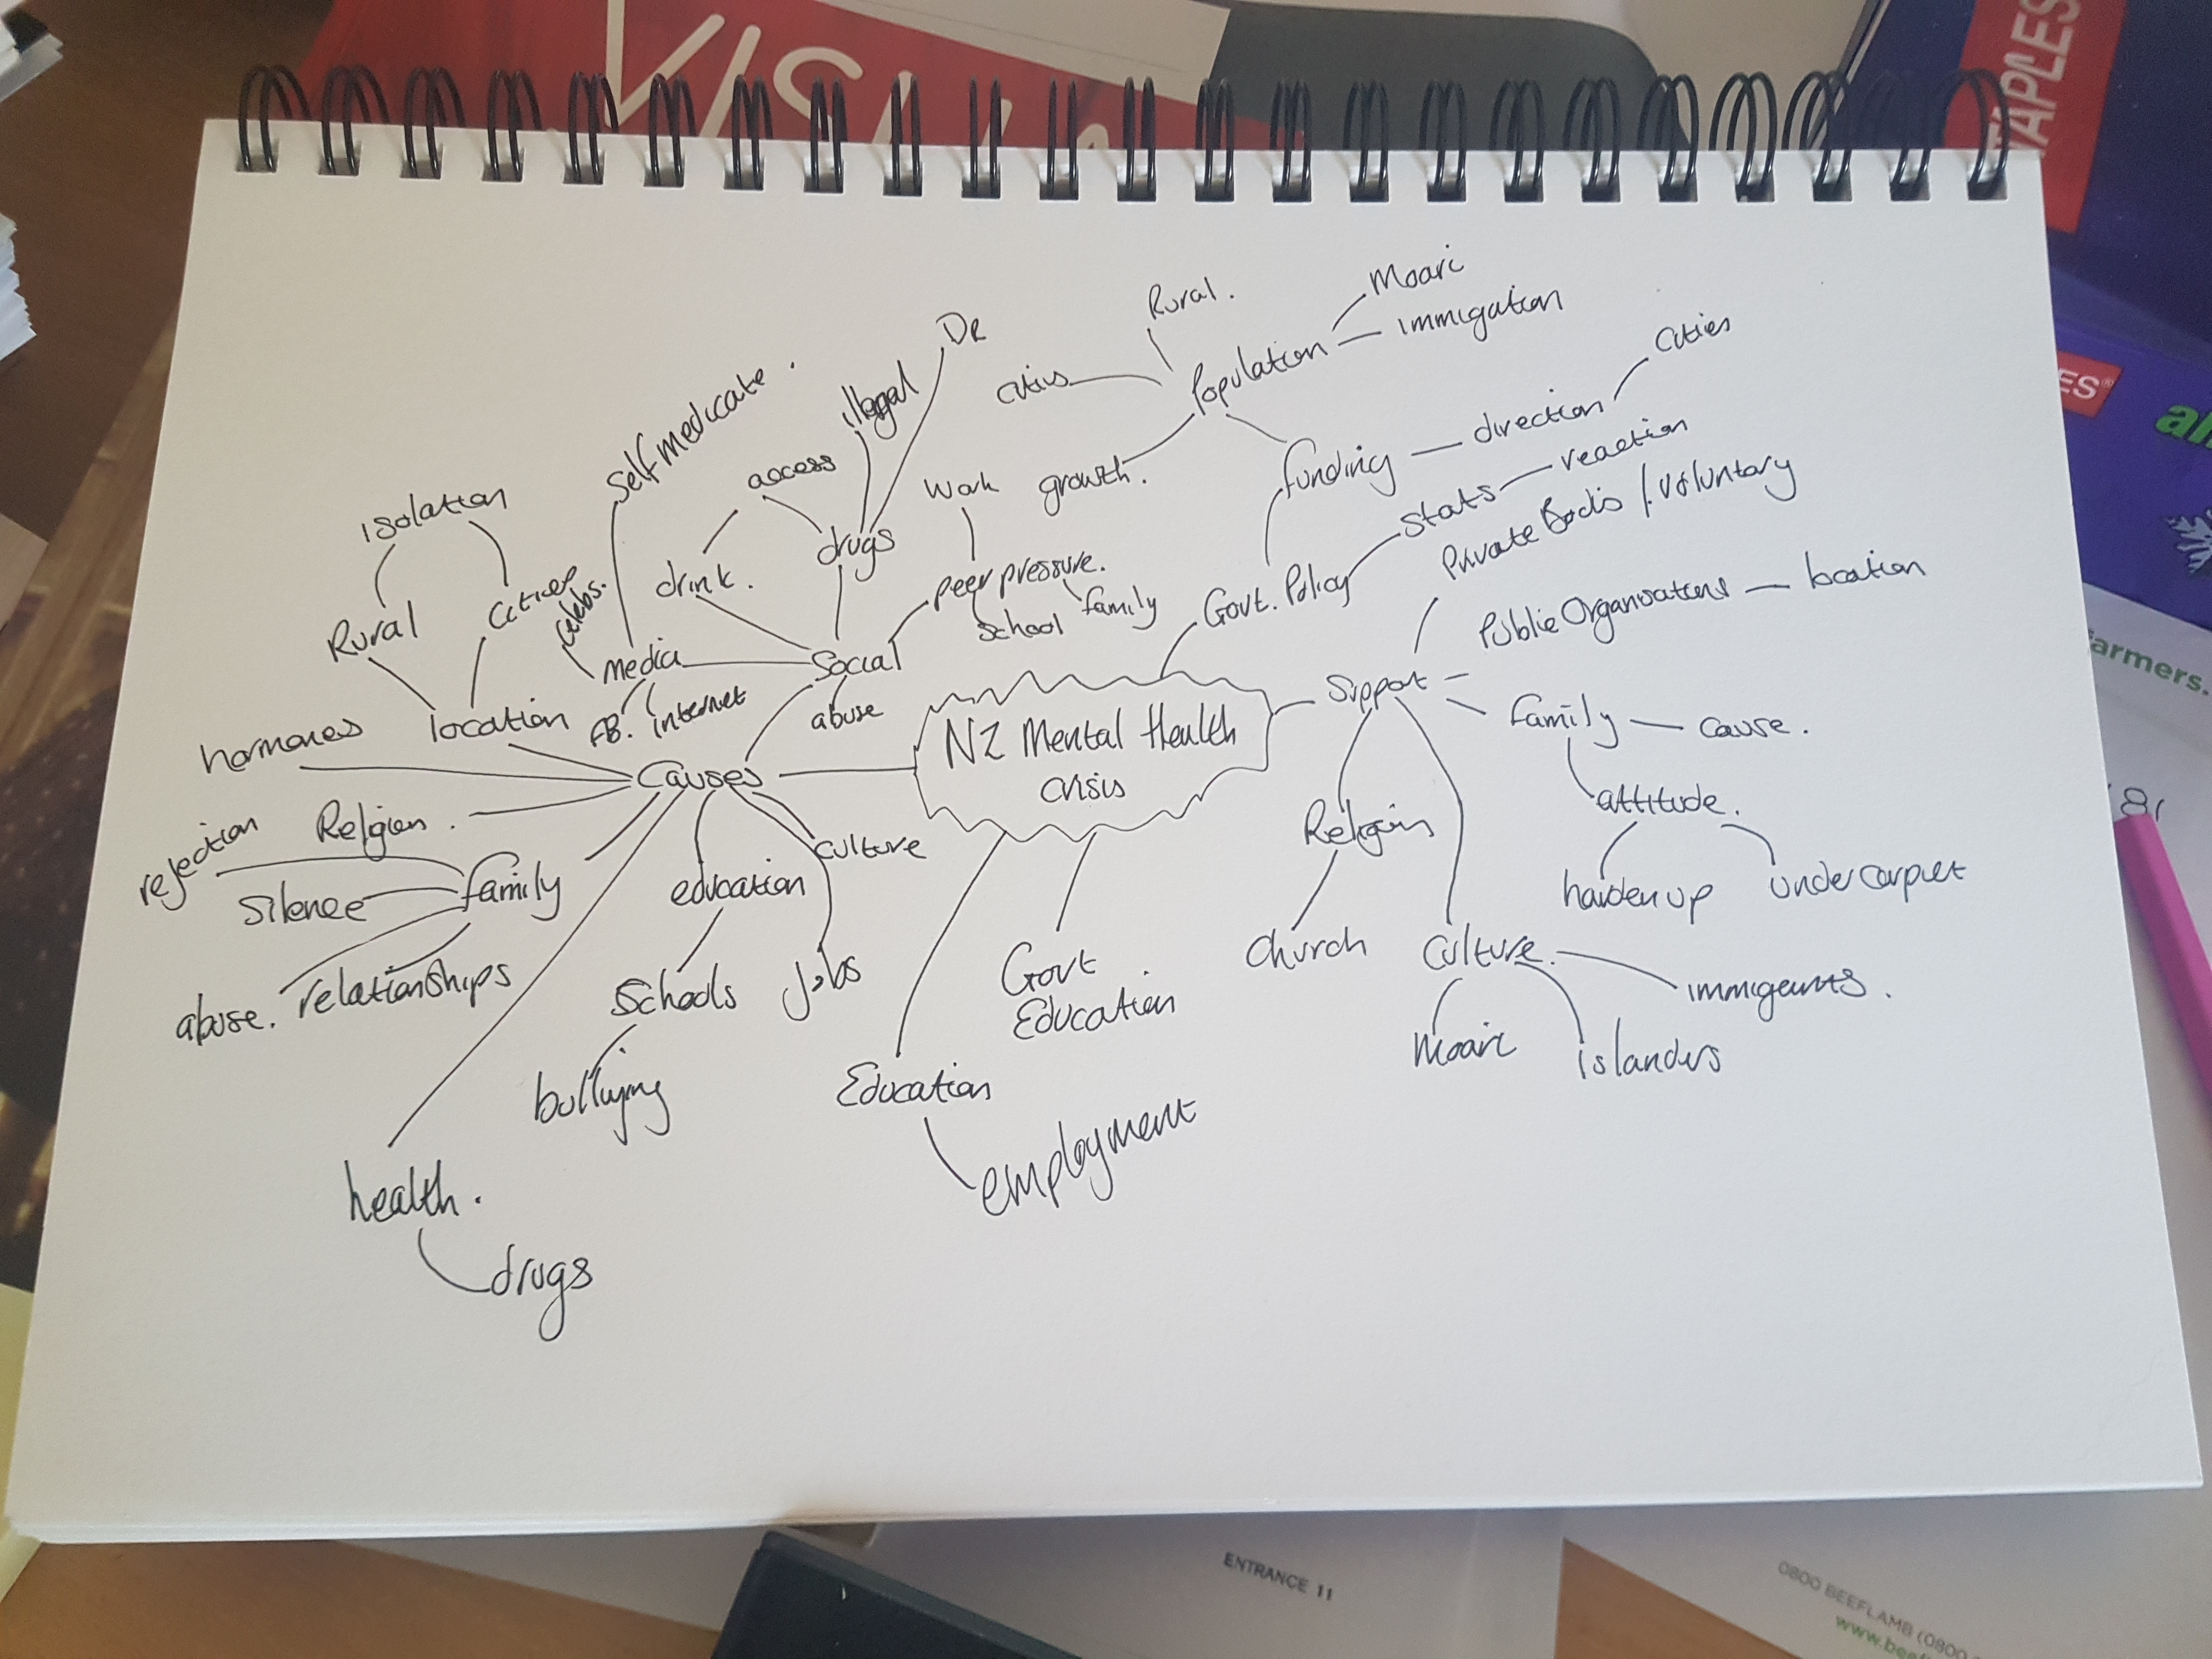 STAPLES
ES®
farmers.
Rural.
Moari
immigation
Population
Cities
De
illegal
self medicate.
access
drugs
drink.
Work
growth.
funding
direction
Cities
Stats
reaction
Private Bodis / Voluntary
isolation
Rural
Cities
celebs.
media
FB.
internet
Social
abuse
peer pressure.
School
family
Govt. Policy
Public Organisations
location
Support
family
cause.
attitude.
harden up
under carpet
hormones
location
Causes
NZ Mental Health
crisis
Religion.
rejection
Silence
family
abuse.
relationships
education
culture
Schools
jobs
bullying
health.
drugs
Govt
Education
Education
employment
Church
Culture.
Moari
islanders
ENTRANCE 11
0800 BEEFLAMB (0800